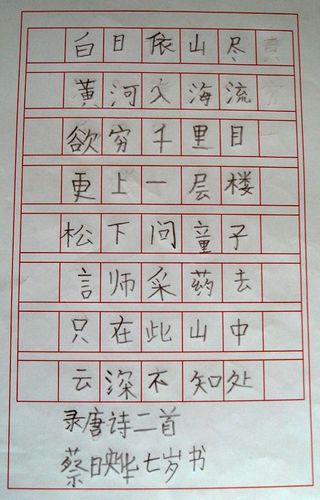 白日依山尽
黄河入海流
欲穷千里目
更上一层楼
松下问童子
言师采药去
只在此山中
云深不知处
录唐诗二首
蔡映华七岁书